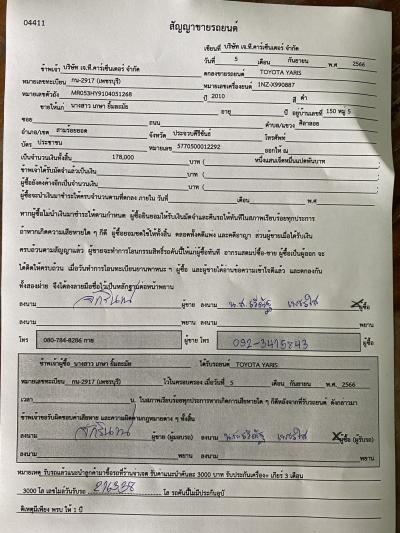 04411
สัญญาขายรถยนต์
เขียนที่ บริษัท เจ.ที.คาร์เซ็นเตอร์ จำกัด
วันที่ 5 เดือน กันยายน พ.ศ. 2566
ข้าพเจ้า บริษัท เจ.ที.คาร์เซ็นเตอร์ จำกัด ตกลงขายรถยนต์ TOYOTA YARIS
หมายเลขทะเบียน กน-2917 (เพชรบุรี) หมายเลขเครื่องยนต์ 1NZ-X990887
หมายเลขตัวถัง MR053HY9104051268 ปี 2010 สี ดำ
ขายให้แก่ นางสาว เกษา ยิ้มละมัย อายุ ปี อยู่บ้านเลขที่ 150 หมู่ 5
ซอย ถนน ตำบล/แขวง ศิลาลอย
อำเภอ/เขต สามร้อยยอด จังหวัด ประจวบคีรีขันธ์ โทรศัพท์
บัตร ประชาชน หมายเลข 5770500012292 ออกให้ ณ
เป็นจำนวนเงินทั้งสิ้น 178,000 บาท ( หนึ่งแสนเจ็ดหมื่นแปดพันบาท
ข้าพเจ้าได้รับมัดจำแล้วเป็นเงิน บาท (
ผู้ซื้อยังคงค้างอีกเป็นจำนวนเงิน บาท (
ผู้ซื้อจะนำเงินมาชำระให้ครบจำนวนตามที่ตกลง ภายใน วันที่ เดือน พ.ศ.
หากผู้ซื้อไม่นำเงินมาชำระให้ตามกำหนด ผู้ซื้อยินยอมให้ริบเงินมัดจำและคืนรถให้ทันทีในสภาพเรียบร้อยทุกประการ
ถ้าหากเกิดความเสียหายใด ๆ ก็ดี ผู้ซื้อยอมชดใช้ให้ทั้งสิ้น ตลอดทั้งคดีแพ่ง และคดีอาญา ส่วนผู้ขายเมื่อได้รับเงิน
ครบถ้วนตามสัญญาแล้ว ผู้ขายจะทำการโอนกรรมสิทธิ์รถคันนี้ให้แก่ผู้ซื้อทันที อากรแสตมป์ซื้อ-ขาย ผู้ซื้อเป็นผู้ออก จะ
ได้คิดให้ครบถ้วน เมื่อวันทำการโอนทะเบียนยานพาหนะ ๆ ผู้ซื้อ และผู้ขายได้อ่านข้อความเข้าใจดีแล้ว และตกลงกัน
ทั้งสองฝ่าย จึงได้ลงลายมือชื่อไว้เป็นหลักฐานต่อหน้าพยาน
ลงนาม ผู้ขาย ลงนาม ผู้ซื้อ
ลงนาม พยาน ลงนาม พยาน
โทร 080-784-8286 กาย ผู้ขาย โทร ผู้ซื้อ
ข้าพเจ้าผู้ซื้อ นางสาว เกษา ยิ้มละมัย ได้รับรถยนต์ TOYOTA YARIS
หมายเลขทะเบียน กน-2917 (เพชรบุรี) ไว้ในครอบครอง เมื่อวันที่ 5 เดือน กันยายน พ.ศ. 2566
เวลา น. ในสภาพเรียบร้อยทุกประการหากเกิดการเสียหายใด ๆ ก็ดีหลังจากที่รับรถยนต์ ดังกล่าวมา
ข้าพเจ้าขอรับผิดชอบค่าเสียหาย และความผิดตามกฎหมายต่าง ๆ ทั้งสิ้น
ลงนาม ผู้ขาย (ผู้มอบรถ) ลงนาม ผู้ซื้อ (ผู้รับรถ)
ลงนาม พยาน ลงนาม พยาน
3000 โล เลขไมล์วันรับรถ 216338 โล รถคันนี้ไม่มีประกันอุบั
ติเหตุมีเพียง พรบ ให้ 1 ปี